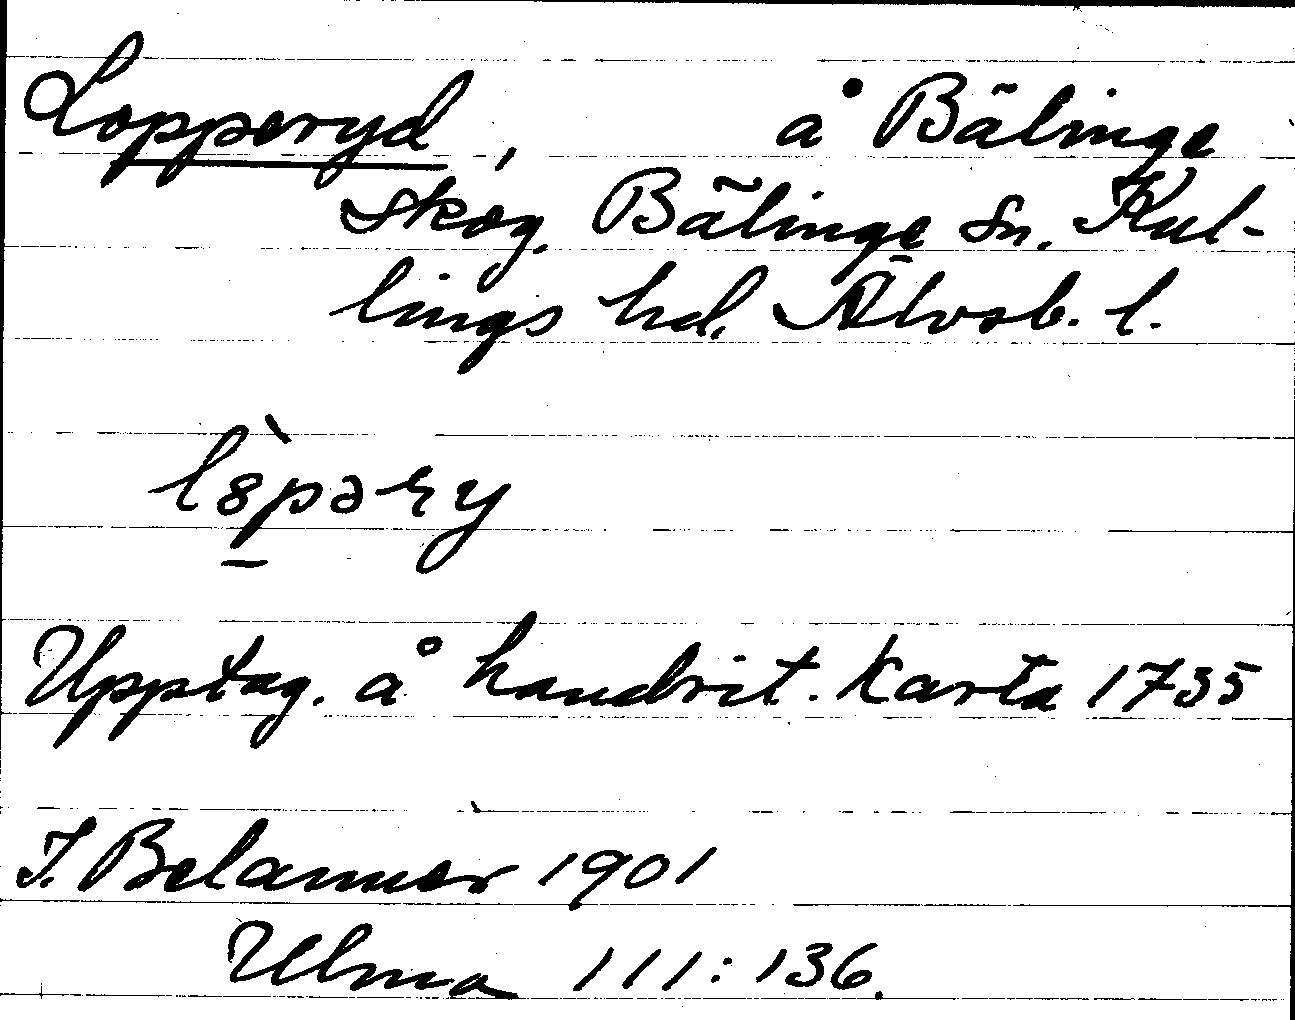 Lopperyd, å Bälinge
skog. Bälinge sn. Kul-
lings hd. Älvsb. l.
l8̀pəry
Upptag. å handrit. karta 1735
I. Belanner 1901
Ulma 111:136.